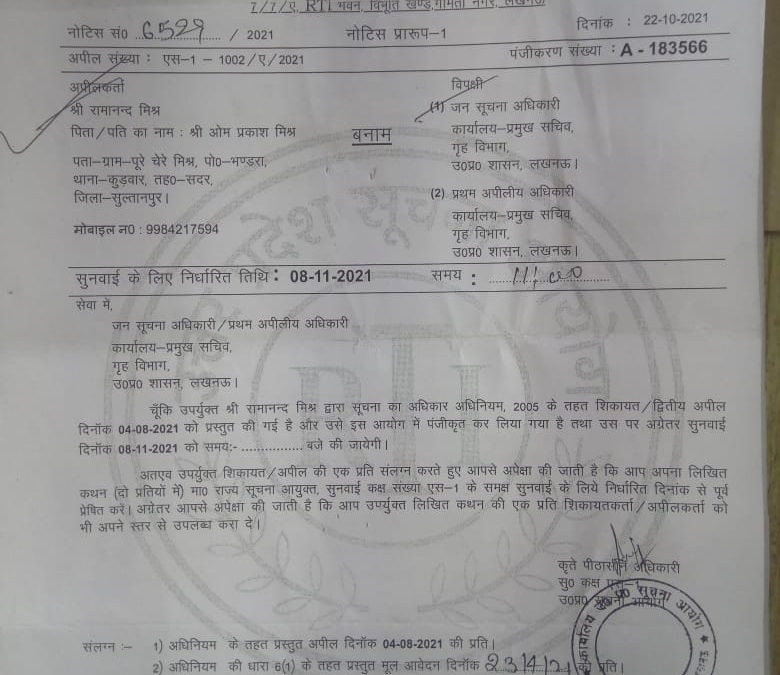 7/7/ए, RTI भवन, विभूति खण्ड,गोमती नगर, लखनऊ
नोटिस सं0 6529 / 2021 नोटिस प्रारूप-1 दिनांक : 22-10-2021
अपील संख्या : एस-1 - 1002/ए/2021 पंजीकरण संख्या : A - 183566
अपीलकर्ता
श्री रामानन्द मिश्र
पिता/पति का नाम : श्री ओम प्रकाश मिश्र
पता-ग्राम-पूरे चेरे मिश्र, पो0-भण्डरा,
थाना-कुडवार, तह0-सदर,
जिला-सुल्तानपुर।
मोबाइल न0 : 9984217594
बनाम
विपक्षी
(1) जन सूचना अधिकारी
कार्यालय-प्रमुख सचिव,
गृह विभाग,
उ0प्र0 शासन, लखनऊ।
(2) प्रथम अपीलीय अधिकारी
कार्यालय-प्रमुख सचिव,
गृह विभाग,
उ0प्र0 शासन, लखनऊ।
सुनवाई के लिए निर्धारित तिथि : 08-11-2021 समय :
सेवा में,
जन सूचना अधिकारी/प्रथम अपीलीय अधिकारी
कार्यालय-प्रमुख सचिव,
गृह विभाग,
उ0प्र0 शासन, लखनऊ।
चूँकि उपर्युक्त श्री रामानन्द मिश्र द्वारा सूचना का अधिकार अधिनियम, 2005 के तहत शिकायत/द्वितीय अपील
दिनॉक 04-08-2021 को प्रस्तुत की गई है और उसे इस आयोग में पंजीकृत कर लिया गया है तथा उस पर अग्रेतर सुनवाई
दिनॉक 08-11-2021 को समय:- ................ बजे की जायेगी।
अतएव उपर्युक्त शिकायत/अपील की एक प्रति संलग्न करते हुए आपसे अपेक्षा की जाती है कि आप अपना लिखित
कथन (दो प्रतियों में) मा0 राज्य सूचना आयुक्त, सुनवाई कक्ष संख्या एस-1 के समक्ष सुनवाई के लिये निर्धारित दिनांक से पूर्व
प्रेषित करें। अग्रेतर आपसे अपेक्षा की जाती है कि आप उपर्युक्त लिखित कथन की एक प्रति शिकायतकर्ता/अपीलकर्ता को
भी अपने स्तर से उपलब्ध करा दे।
कृते पीठासीन अधिकारी
सु0 कक्ष एस-1
उ0प्र0 सूचना आयोग
संलग्न :- 1) अधिनियम के तहत प्रस्तुत अपील दिनॉक 04-08-2021 की प्रति।
2) अधिनियम की धारा 6(1) के तहत प्रस्तुत मूल आवेदन दिनॉक 23/4/21 की प्रति।
कार्यालय उ0 प्र0 सूचना आयोग
RTI